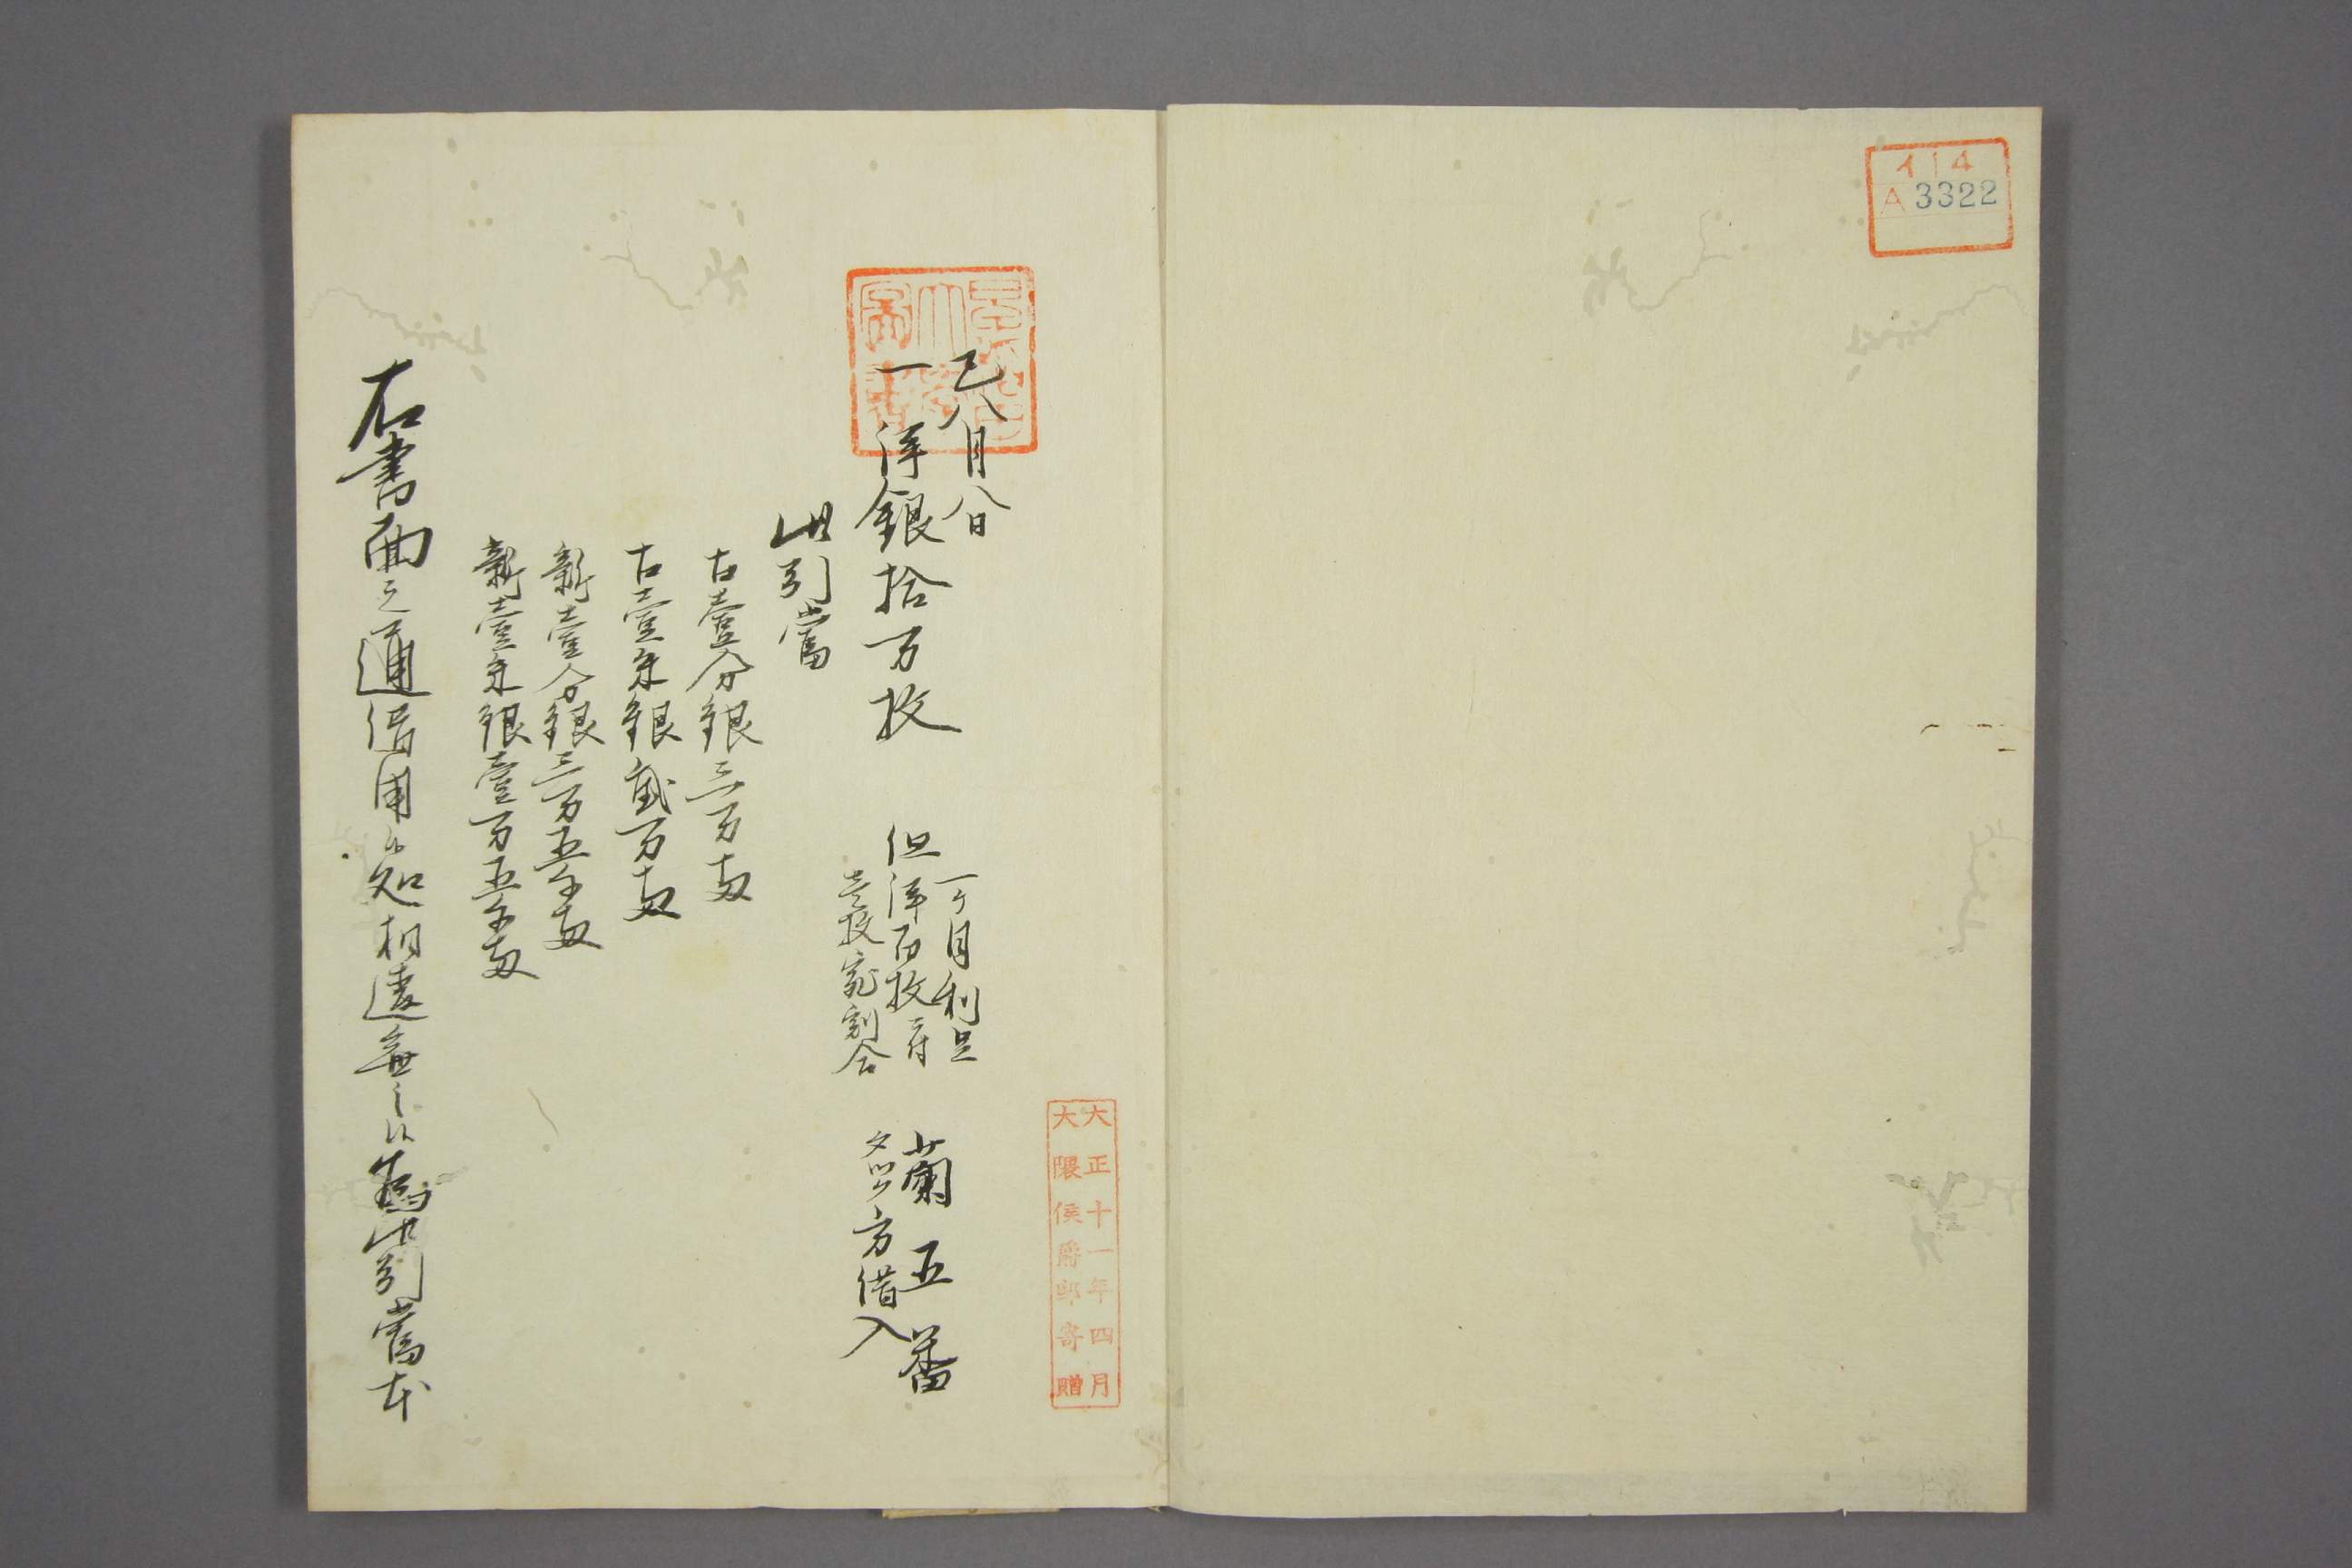 イ14
A3322
大正十一年四月
大隈侯爵邸寄贈
巳八月八日
一洋銀拾万枚
但
一ケ月利足
洋百枚ニ付
壱枚宛割合
蘭五番
方借入
此引当
古壱分銀三万両
古壱朱銀弐万両
新壱分銀三万五千両
新壱朱銀壱万五千両
右書面之通借用候処相違無之候為此引当本